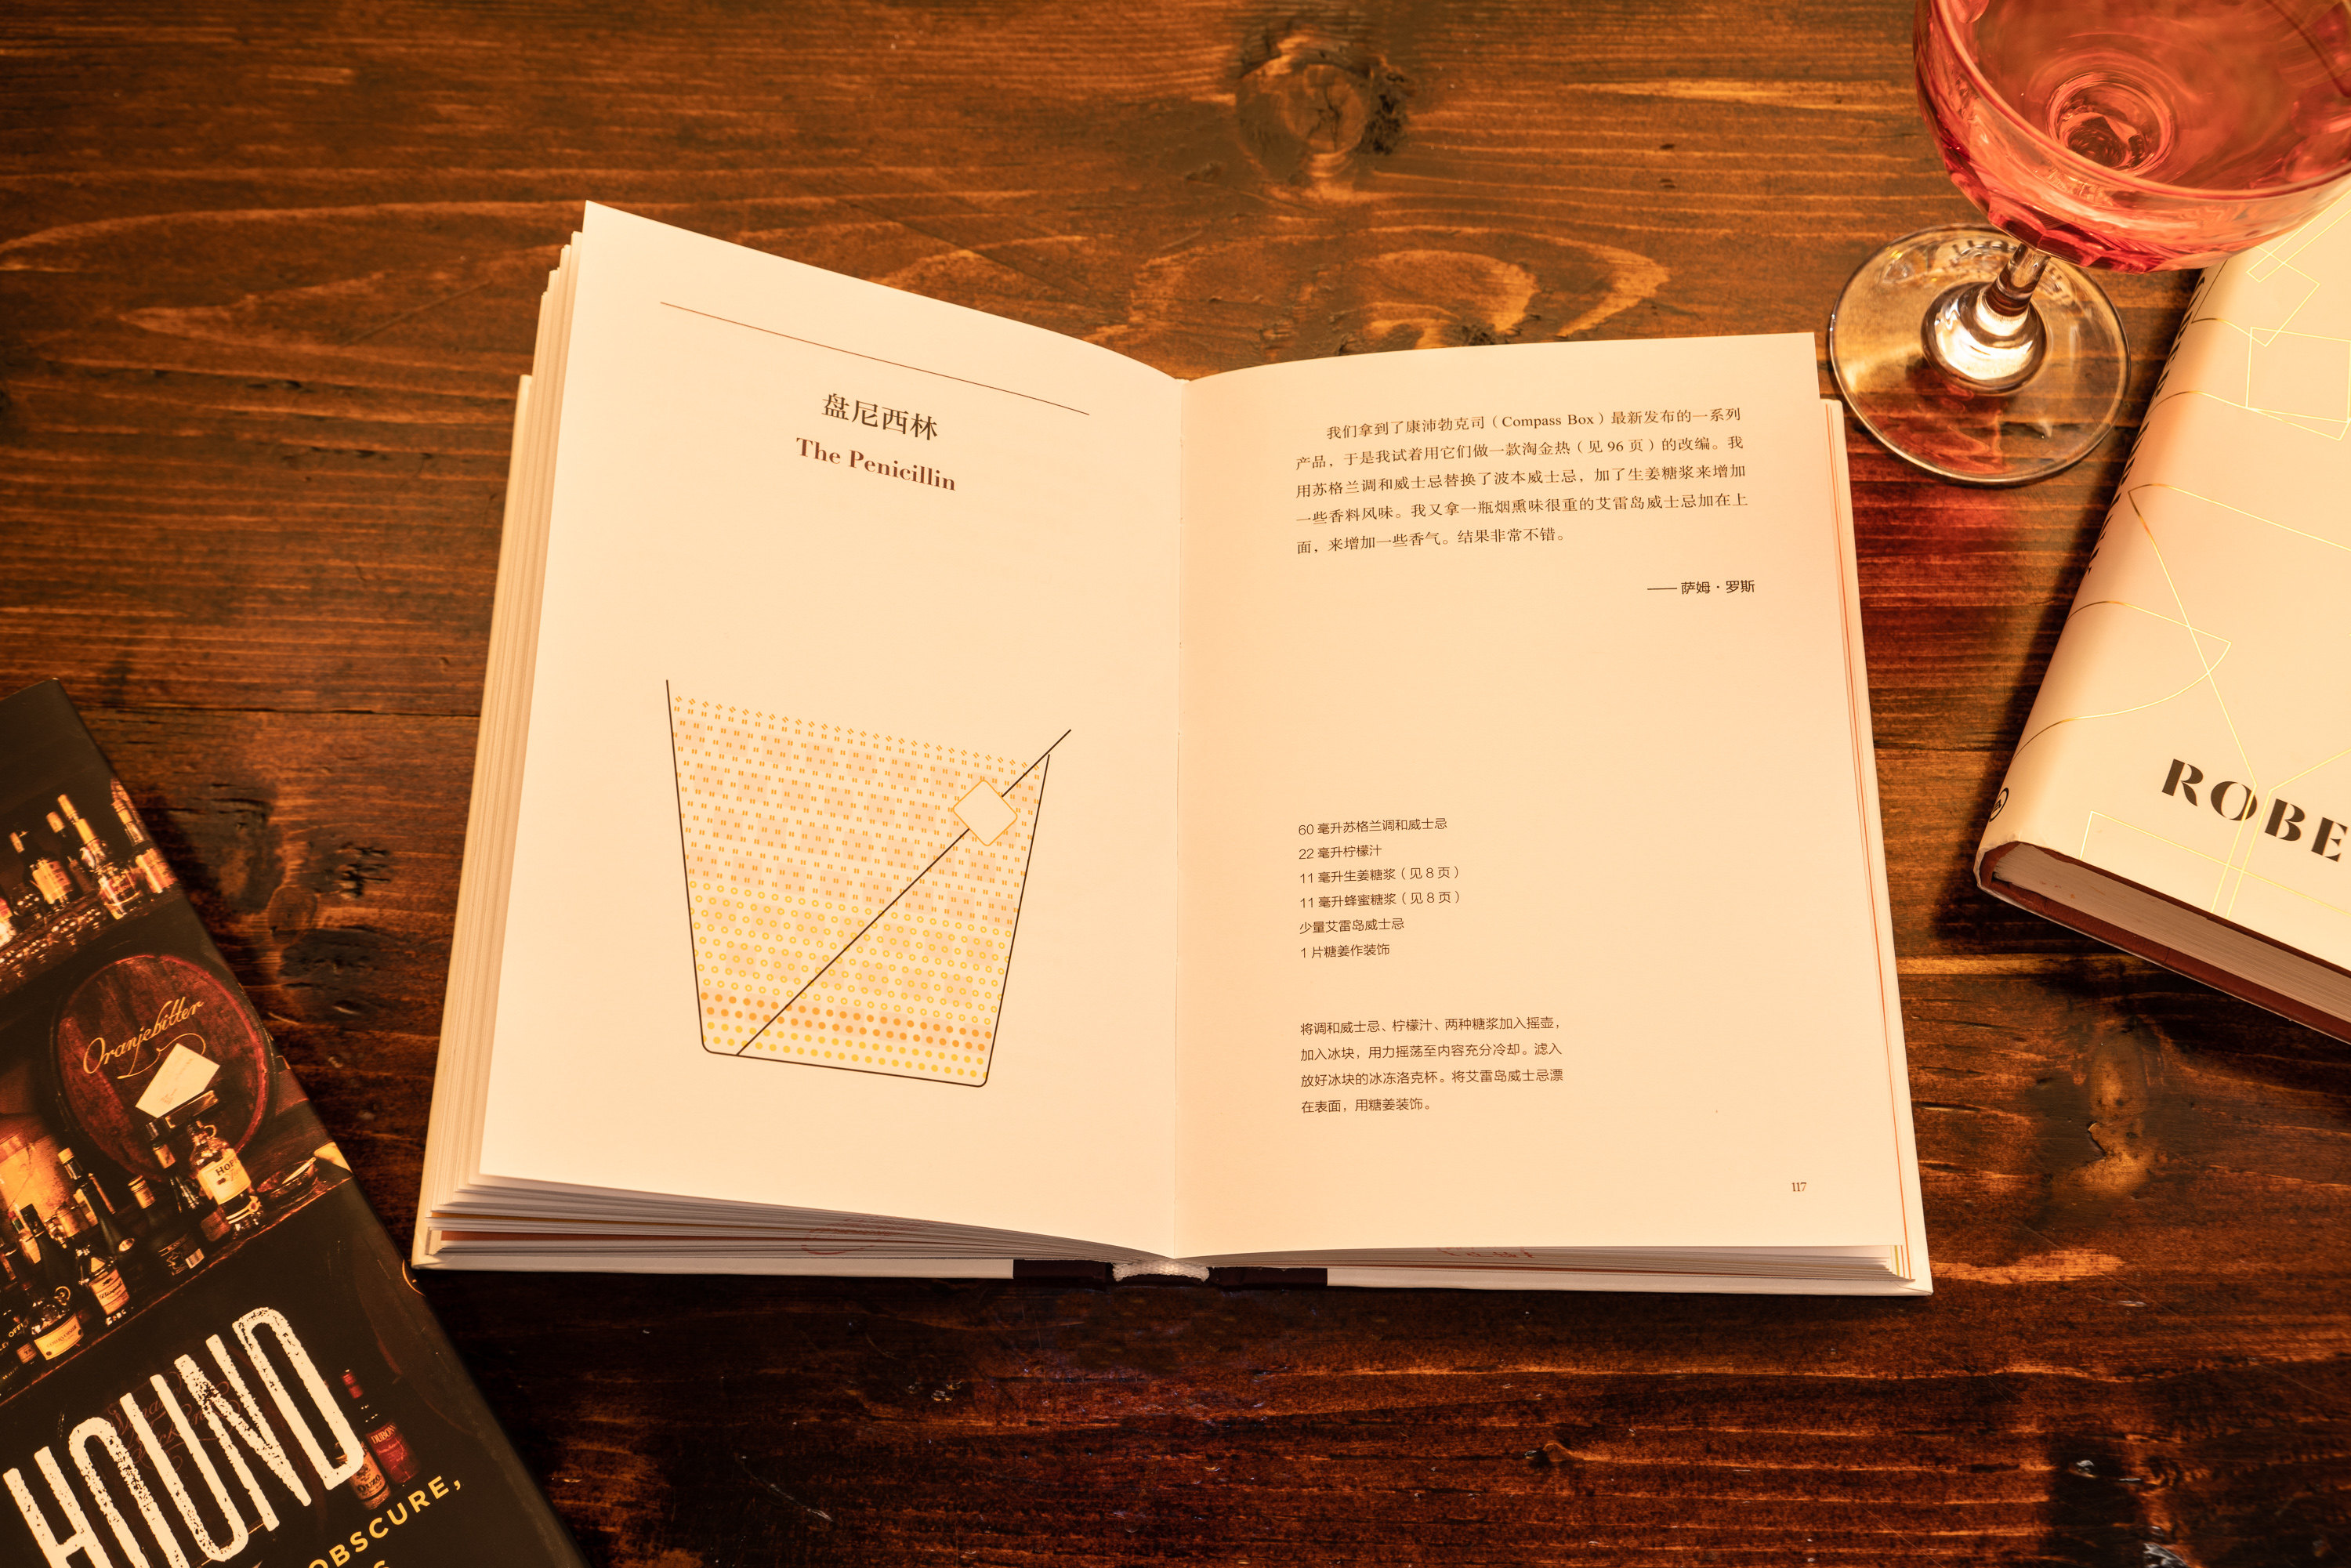 盘尼西林
The Penicillin
我们拿到了康沛勃克司（Compass Box）最新发布的一系列
产品，于是我试着用它们做一款淘金热（见 96 页）的改编。我
用苏格兰调和威士忌替换了波本威士忌，加了生姜糖浆来增加
一些香料风味。我又拿一瓶烟熏味很重的艾雷岛威士忌加在上
面，来增加一些香气。结果非常不错。
—— 萨姆·罗斯
60 毫升苏格兰调和威士忌
22 毫升柠檬汁
11 毫升生姜糖浆（见 8 页）
11 毫升蜂蜜糖浆（见 8 页）
少量艾雷岛威士忌
1 片糖姜作装饰
将调和威士忌、柠檬汁、两种糖浆加入摇壶，
加入冰块，用力摇荡至内容充分冷却。滤入
放好冰块的冰冻洛克杯。将艾雷岛威士忌漂
在表面，用糖姜装饰。
117
Oranjebitter
HOUND
OBSCURE,
ROBE